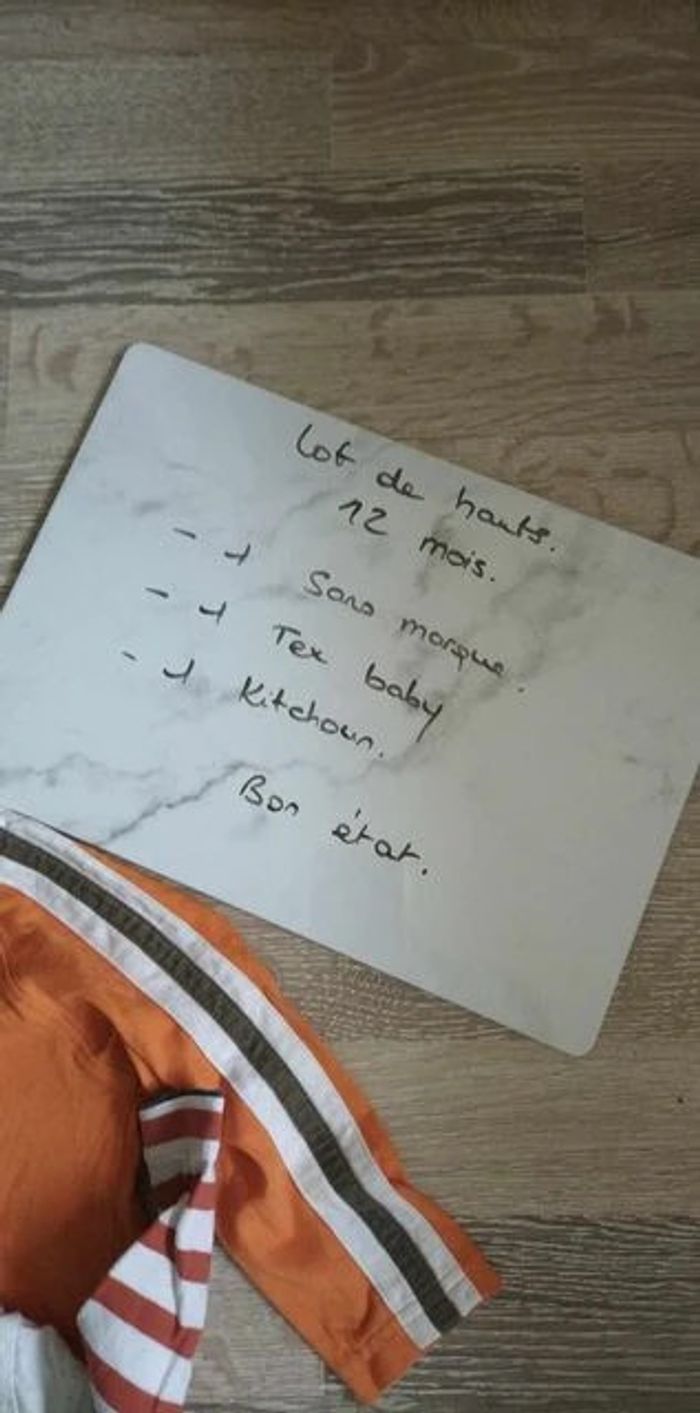 Lot de hauts.
12 mois.
- 1 Sans marque.
- 1 Tex baby
- 1 Kitchoun.
Bon état.